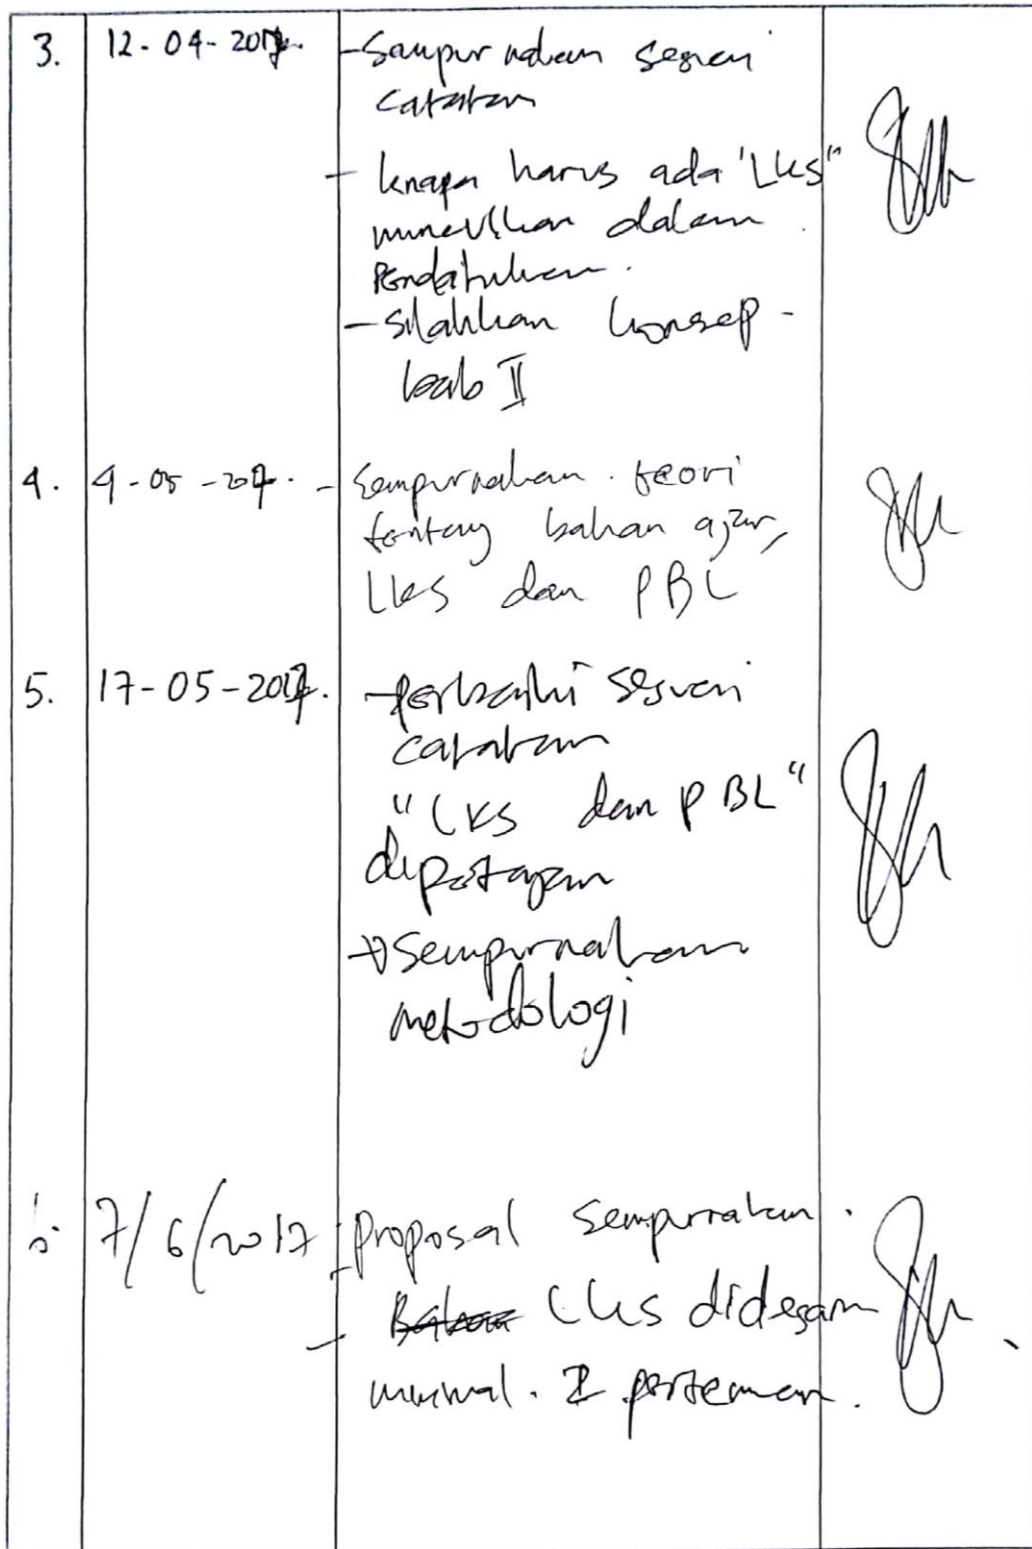 3. 12-04-2017. - Sempurnakan sesuai
catatan
- knapa harus ada "LKS"
munculkan dalam
Pendahuluan.
- silahkan konsep -
bab II
4. 4-05-2017. - Sempurnakan. teori
tentang bahan ajar,
LKS dan PBL
5. 17-05-2017. - perbaiki sesuai
catatan
"LKS dan PBL"
dipertajam
→ Sempurnakan
metodologi
6. 7/6/2017 - proposal sempurnakan.
- LKS didesain
minimal. 2 pertemuan.